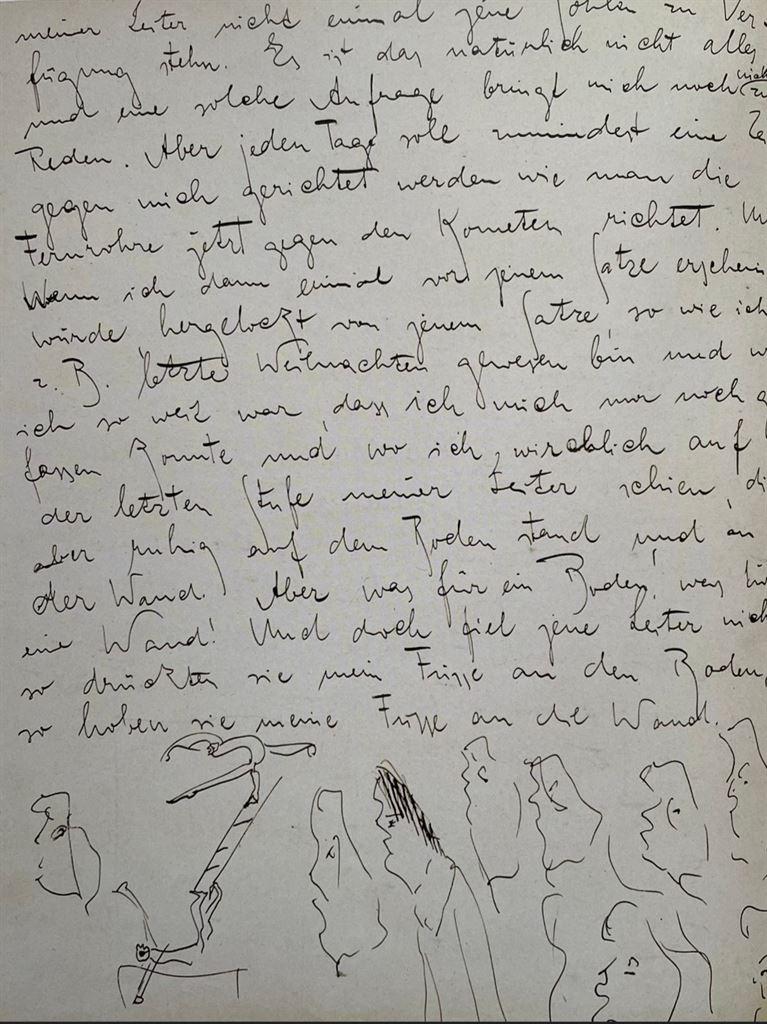 meiner Leiter nicht einmal jene Sohlen zu Ver-
fügung stehn. Es ist das natürlich nicht alles
und eine solche Anfrage bringt mich noch nicht zu
Reden. Aber jeden Tage soll zumindest eine Ze
gegen mich gerichtet werden wie man die
Fernrohre jetzt gegen den Kometen richtet. U
Wenn ich dann einmal vor jenem Satze erschein
würde, hergelockt von jenem Satze, so wie ich
z. B. letzte Weihnachten gewesen bin und w
ich so weit war, dass ich mich nur noch g
fassen konnte und wo ich, wircklich auf
der letzten Stufe meiner Leiter schien, di
aber ruhig auf dem Boden stand und an
der Wand. Aber was für ein Boden, was für
eine Wand! Und doch fiel jene Leiter nich
so drückten sie mein Füsse an den Boden,
so hoben sie meine Füsse an die Wand.